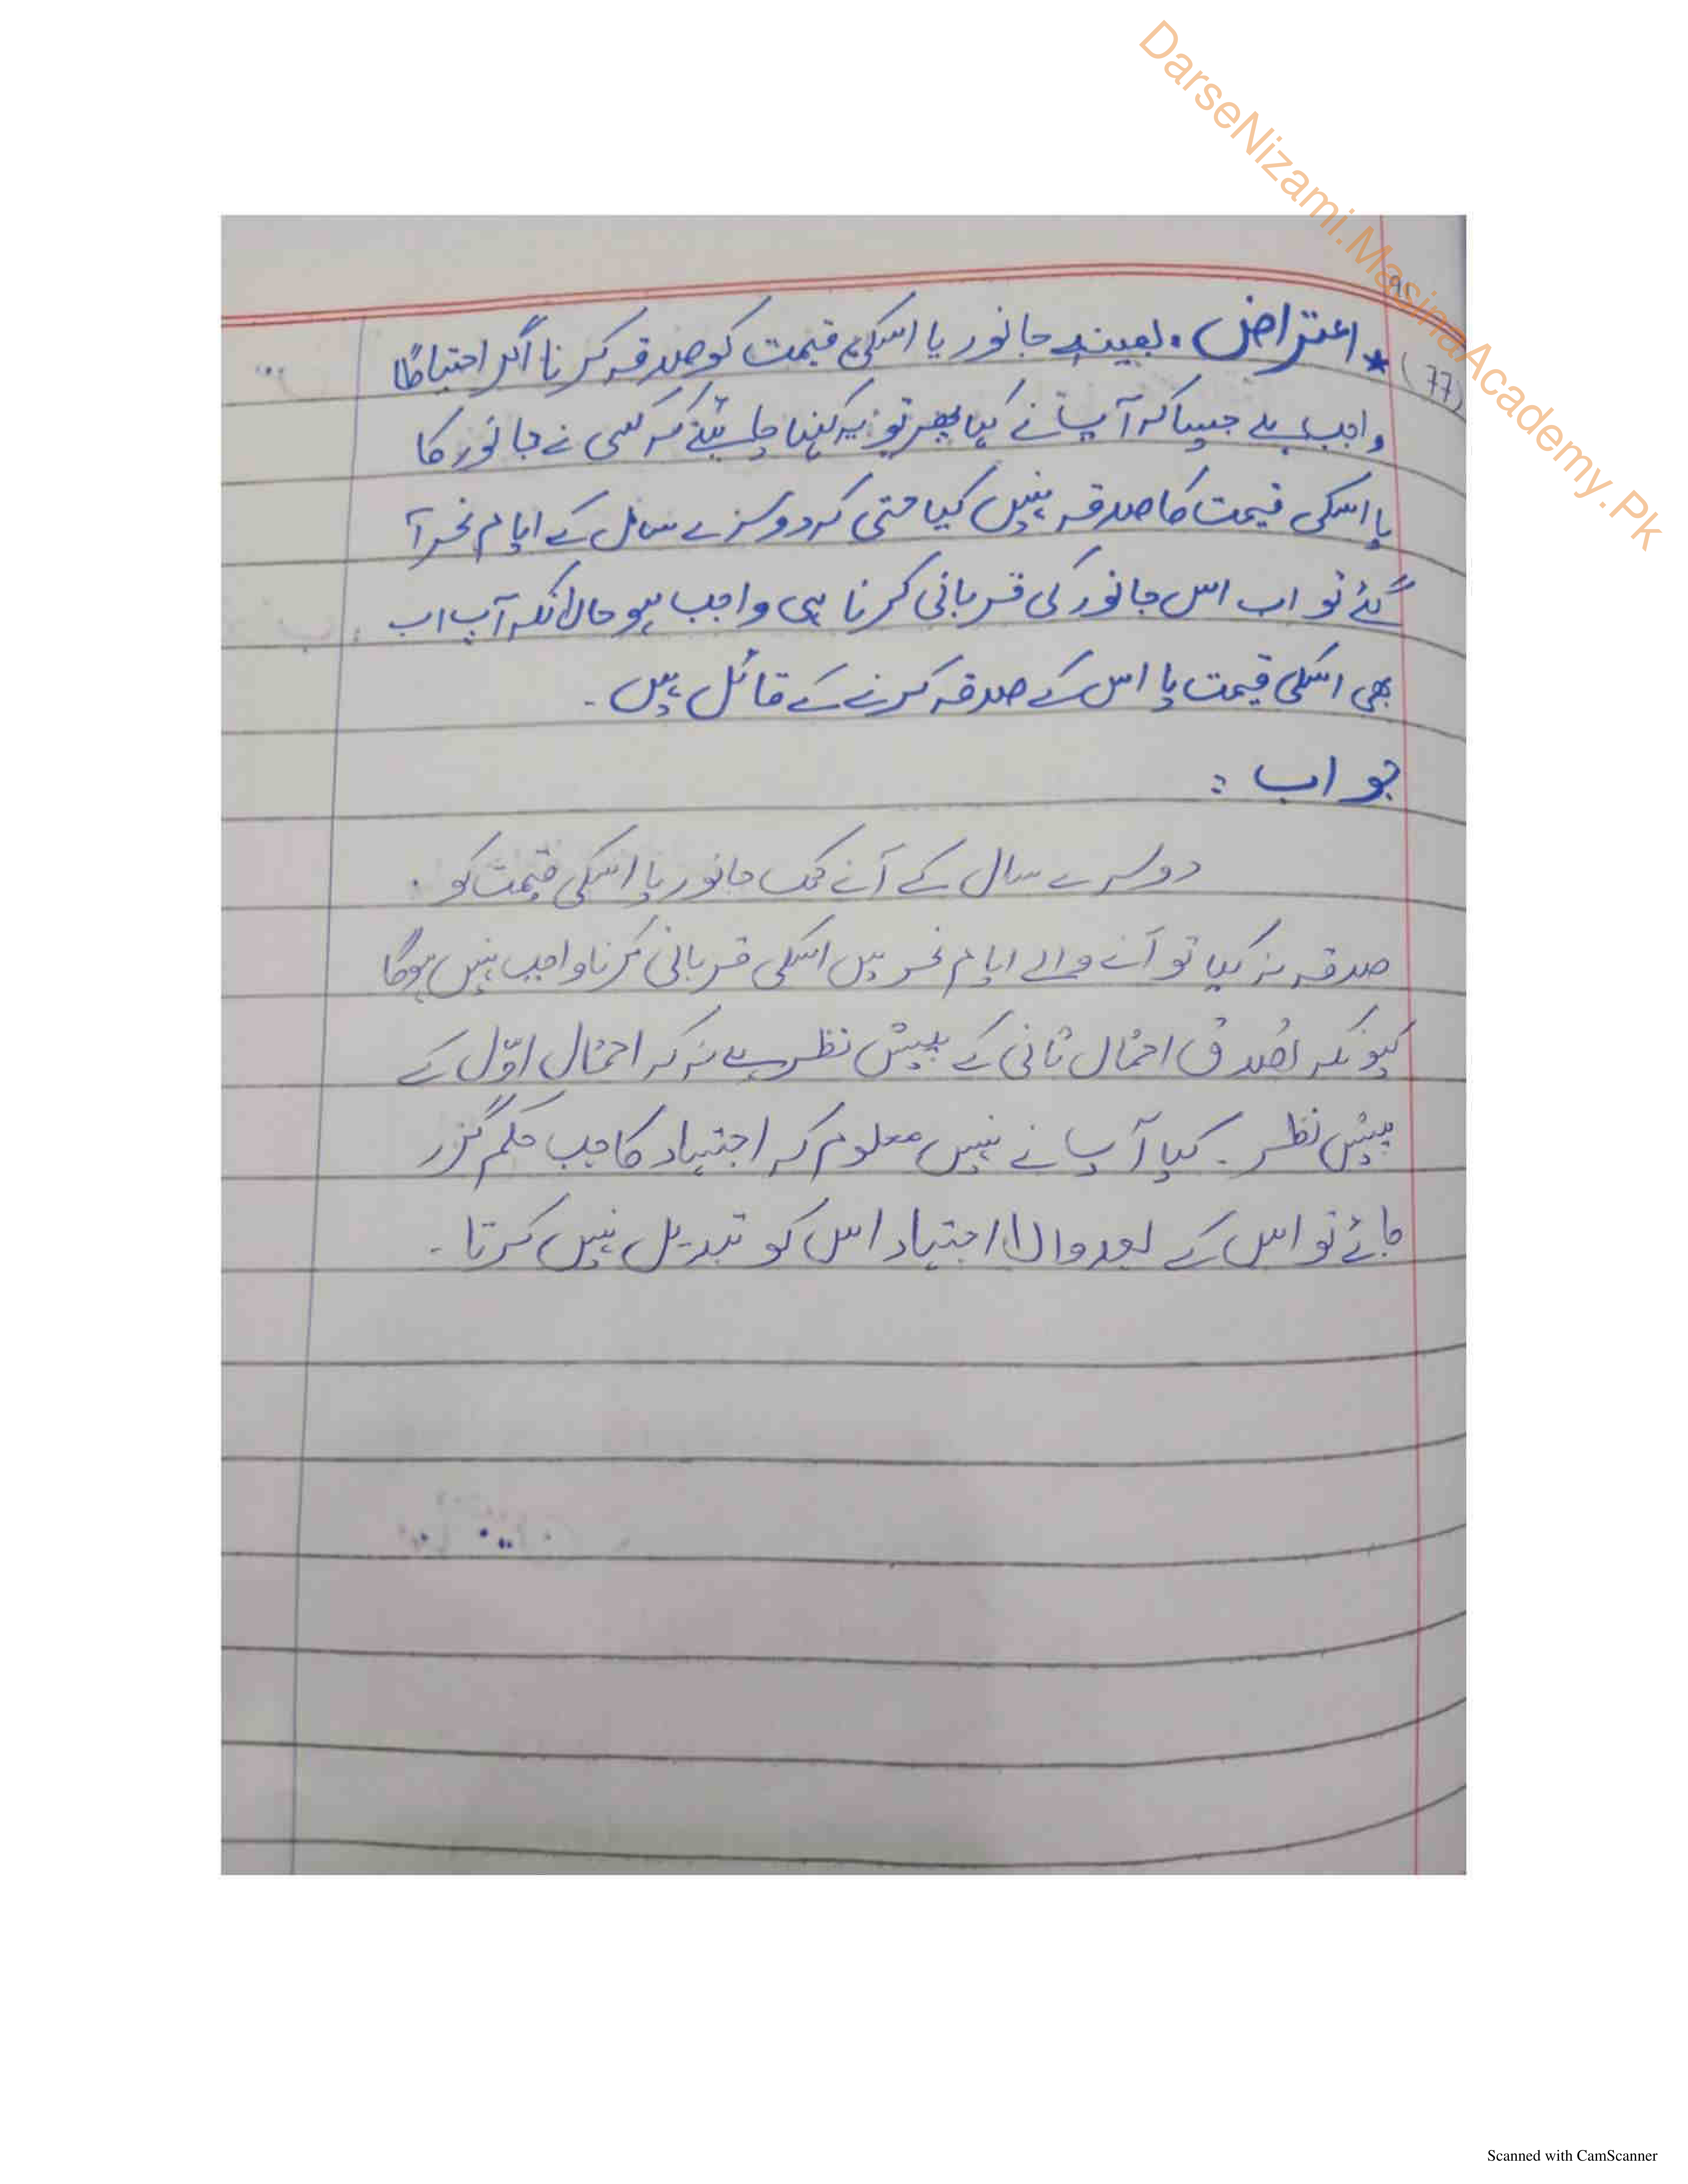 DarseNizami.MasinaAcademy.Pk
(77)
★ اعتراض ۔ بعینہ جانور یا اسکی قیمت کو صدقہ کرنا اگر احتیاطاً
واجب ہے جیسا کہ آپ نے کہا پھر تو یہ کہنا چاہئیے کہ کسی نے جانور کا
یا اسکی قیمت کا صدقہ نہیں کیا حتی کہ دوسرے سال کے ایام نحر آ
گئے تو اب اس جانور کی قربانی کرنا ہی واجب ہو حالانکہ آپ اب
بھی اسکی قیمت یا اس کے صدقہ کرنے کے قائل ہیں ۔
جواب :
دوسرے سال کے آنے تک جانور یا اسکی قیمت کو
صدقہ نہ کیا تو آنے والے ایام نحر میں اسکی قربانی کرنا واجب نہیں ہوگا
کیونکہ تصدق احتمال ثانی کے پیش نظر ہے نہ کہ احتمال اوّل کے
پیش نظر ۔ کیا آپ نے نہیں معلوم کہ اجتہاد کا جب حکم گزر
جائے تو اس کے بعد والا اجتہاد اس کو تبدیل نہیں کرتا ۔
Scanned with CamScanner